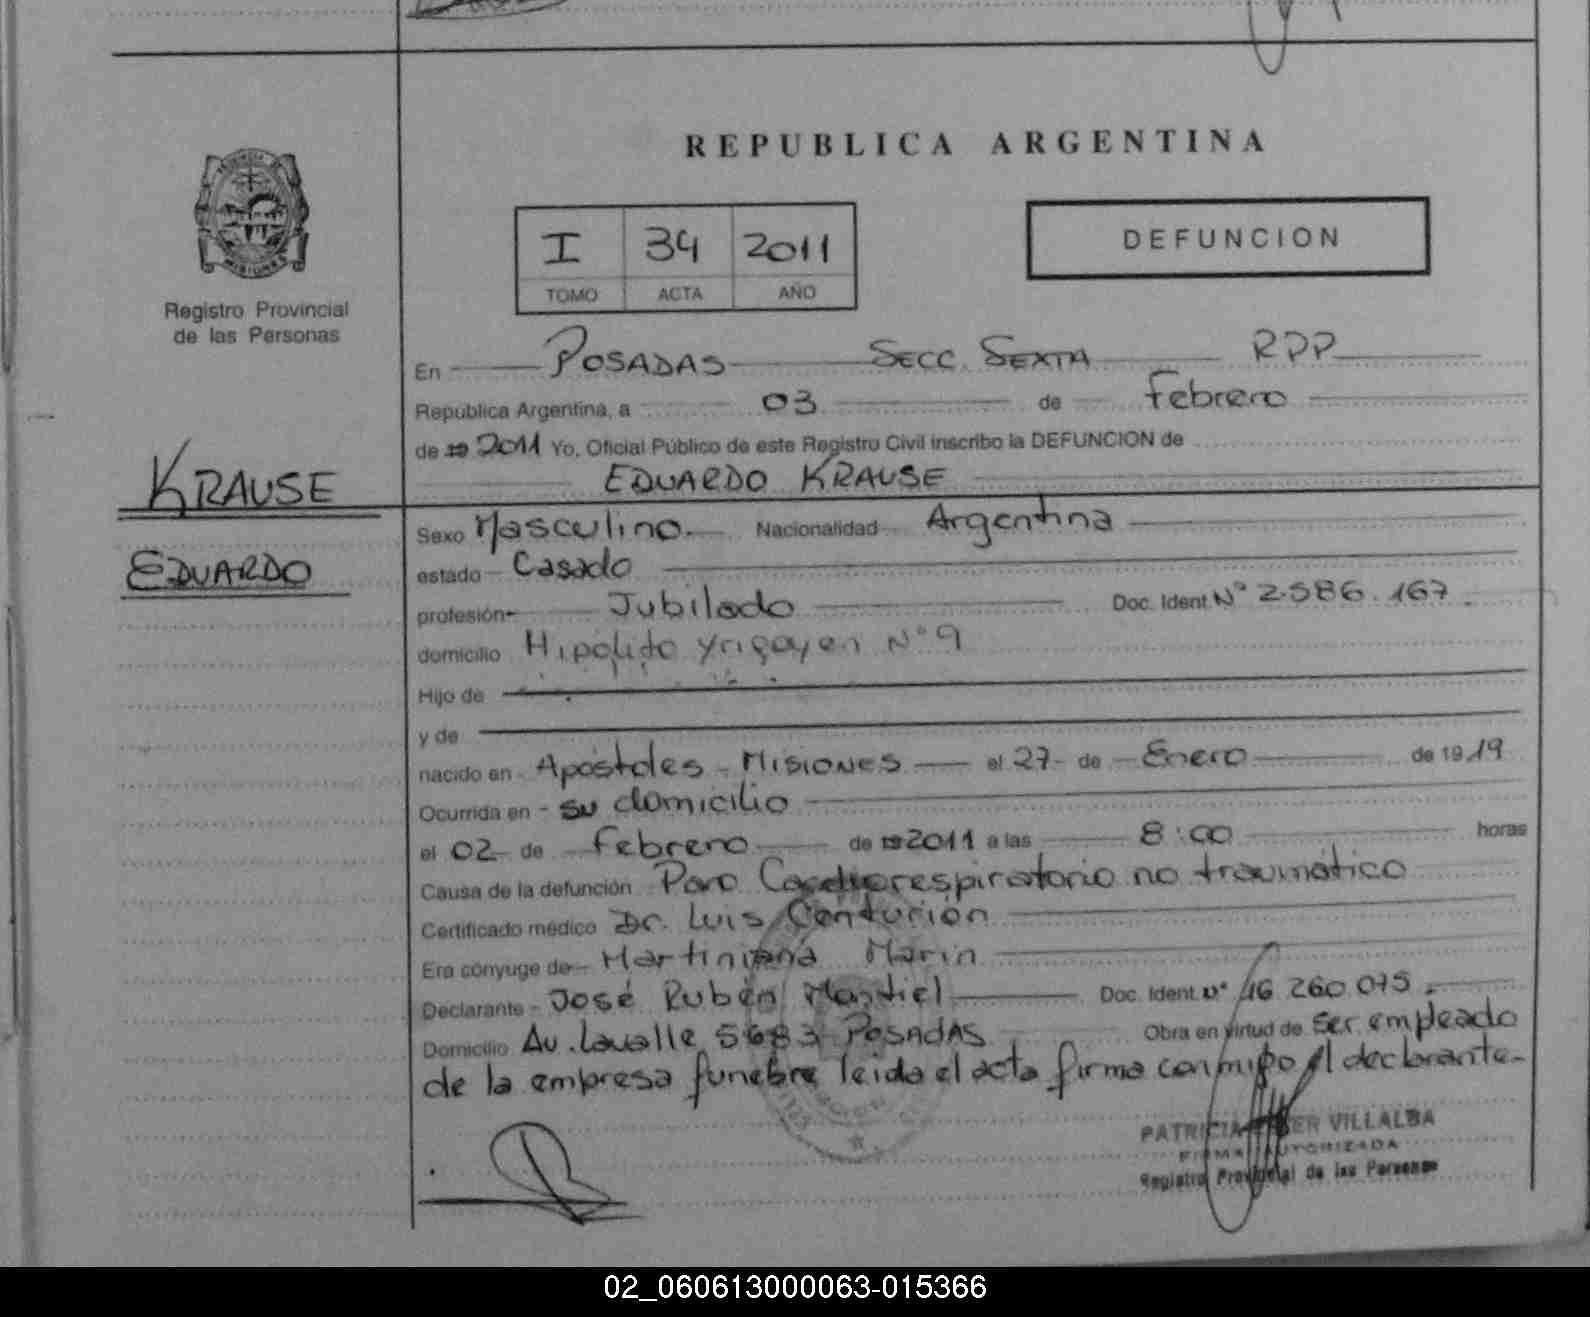 REPUBLICA ARGENTINA
MISIONES
Registro Provincial
de las Personas
I 34 2011
TOMO ACTA AÑO
DEFUNCION
En POSADAS SECC. SEXTA RPP
República Argentina, a 03 de Febrero
de 19 2011 Yo, Oficial Público de este Registro Civil inscribo la DEFUNCION de
EDUARDO KRAUSE
KRAUSE
EDUARDO
Sexo Masculino. Nacionalidad Argentina
estado Casado
profesión Jubilado Doc. Ident. N° 2.586.167.
domicilio Hipolito Yrigoyen N° 9
Hijo de
y de
nacido en Apóstoles - Misiones el 27 de Enero de 1919
Ocurrida en su domicilio
el 02 de Febrero de 19 2011 a las 8:00 horas
Causa de la defunción Paro Cardiorespiratorio no traumático
Certificado médico Dr. Luis Centurión
Era cónyuge de Martiniana Marin
Declarante José Rubén Montiel Doc. Ident. N° 16.260.075.
Domicilio Av. Lavalle 5683 POSADAS Obra en virtud de ser empleado
de la empresa funebre leida el acta firma conmigo el declarante.
PATRICIA VILLALBA
FIRMA AUTORIZADA
Registro Provincial de las Personas
02_060613000063-015366